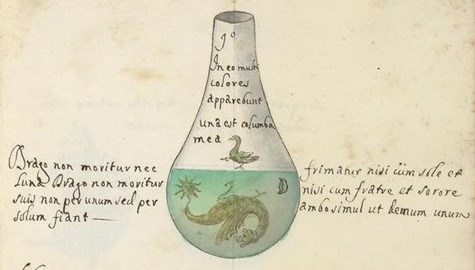 90
In eo multi
colores
apparebunt
una est columba
mea
Drago non moritur nec
Luna Drago non moritur
suis non per unum sed per
solum fiant
frimatur nisi cum sole et
nisi cum fratre et sorore
ambo simul ut demum unum